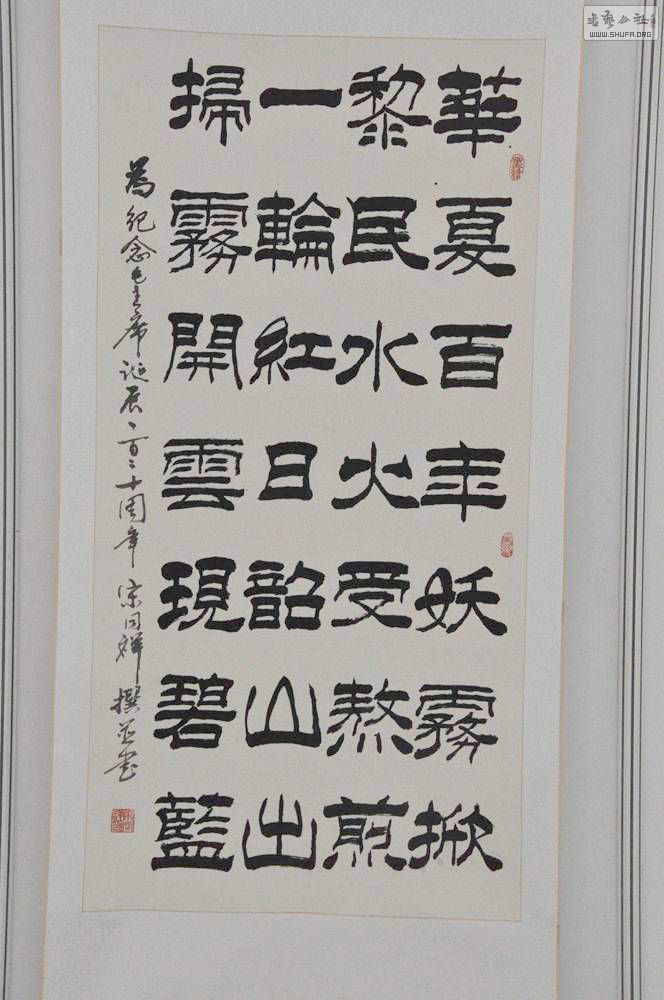 華夏百年妖霧掀
黎民水火受熬煎
一輪紅日韶山出
掃霧開雲現碧藍
為紀念毛主席誕辰一百二十周年 宋同祥撰並書
书艺公社
WWW.SHUFA.ORG